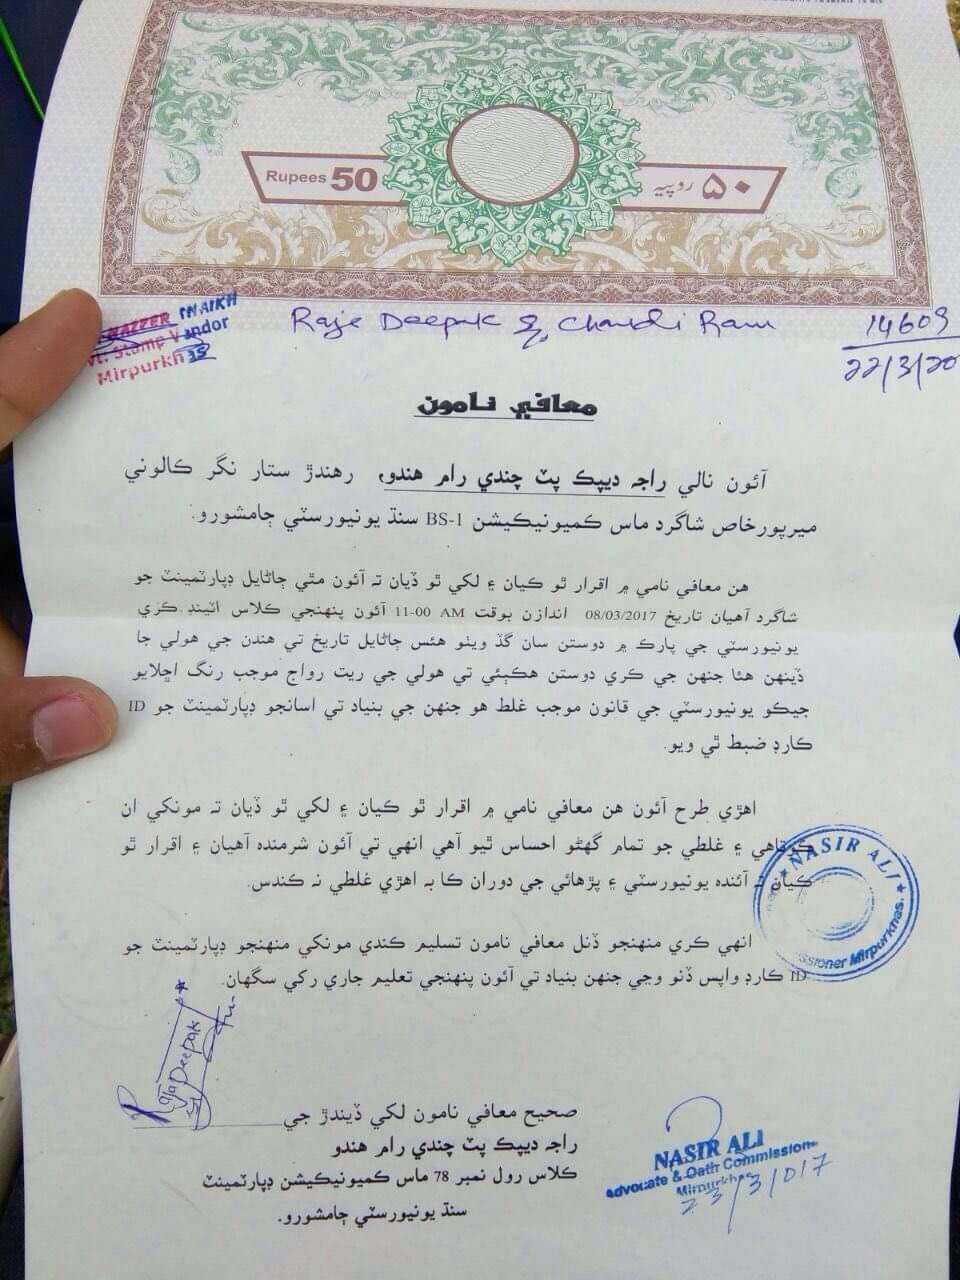 Rupees 50
۵۰ روپیہ
SHAIKH
Stamp Vendor
Mirpurkhas
Raje Deepak S, Chandi Ram
14609
22/3/20
معافي نامون
آئون نالي راجہ ديپڪ پٽ چندي رام هندو، رهندڙ ستار نگر ڪالوني
ميرپورخاص شاگرد ماس ڪميونيڪيشن BS-1 سنڌ يونيورسٽي ڄامشورو.
هن معافي نامي ۾ اقرار ٿو ڪيان ۽ لکي ٿو ڏيان تہ آئون مٿي ڄاڻايل ڊپارٽمينٽ جو
شاگرد آهيان تاريخ 08/03/2017 اندازن بوقت 11-00 AM آئون پنهنجي ڪلاس اٽينڊ ڪري
يونيورسٽي جي پارڪ ۾ دوستن سان گڏ ويٺو هئس ڄاڻايل تاريخ تي هندن جي هولي جا
ڏينهن هئا جنهن جي ڪري دوستن هڪٻئي تي هولي جي ريت رواج موجب رنگ اڇلايو
جيڪو يونيورسٽي جي قانون موجب غلط هو جنهن جي بنياد تي اسانجو ڊپارٽمينٽ جو ID
ڪارڊ ضبط ٿي ويو.
اهڙي طرح آئون هن معافي نامي ۾ اقرار ٿو ڪيان ۽ لکي ٿو ڏيان تہ مونکي ان
ڪوتاهي ۽ غلطي جو تمام گهڻو احساس ٿيو آهي انهي تي آئون شرمنده آهيان ۽ اقرار ٿو
ڪيان تہ آئنده يونيورسٽي ۽ پڙهائي جي دوران ڪا بہ اهڙي غلطي نہ ڪندس.
انهي ڪري منهنجو ڏنل معافي نامون تسليم ڪندي مونکي منهنجو ڊپارٽمينٽ جو
ID ڪارڊ واپس ڏنو وڃي جنهن بنياد تي آئون پنهنجي تعليم جاري رکي سگهان.
NASIR ALI
Commissioner Mirpurkhas.
RajaDeepak
صحيح معافي نامون لکي ڏيندڙ جي
راجہ ديپڪ پٽ چندي رام هندو
ڪلاس رول نمبر 78 ماس ڪميونيڪيشن ڊپارٽمينٽ
سنڌ يونيورسٽي ڄامشورو.
NASIR ALI
Advocate & Oath Commissioner
Mirpurkhas
23/3/017